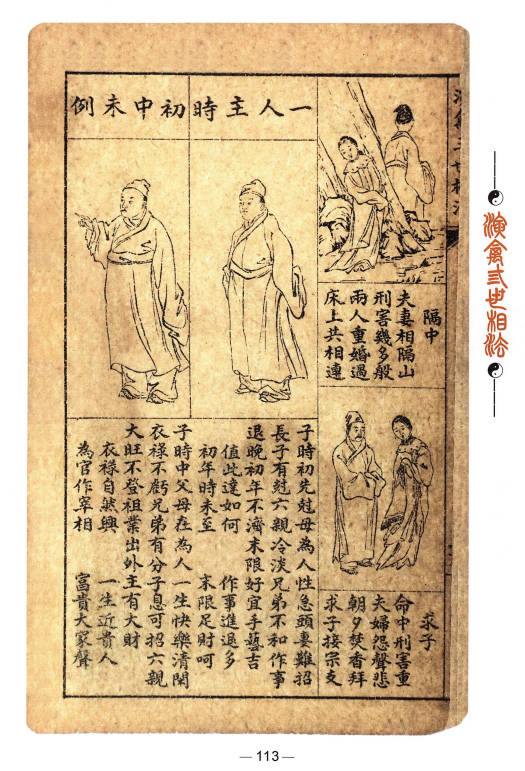 演禽弎世相法
隔中
夫妻相隔山
刑害幾多般
兩人重婚過
床上共相連
求子
命中刑害重
夫婦怨聲悲
朝夕焚香拜
求子接宗支
一人主時初中末例
子時初先尅母為人性急頭妻難招
長子有尅六親冷淡兄弟不和作事
退晚初年不濟末限好宜手藝吉
值此達如何 作事進退多
初年時未至 末限足財呵
子時中父母在為人一生快樂清閑
衣祿不虧兄弟有分子息可招六親
大旺不登祖業出外主有大財
衣祿自然興 一生近貴人
為官作宰相 富貴大家聲
— 113 —